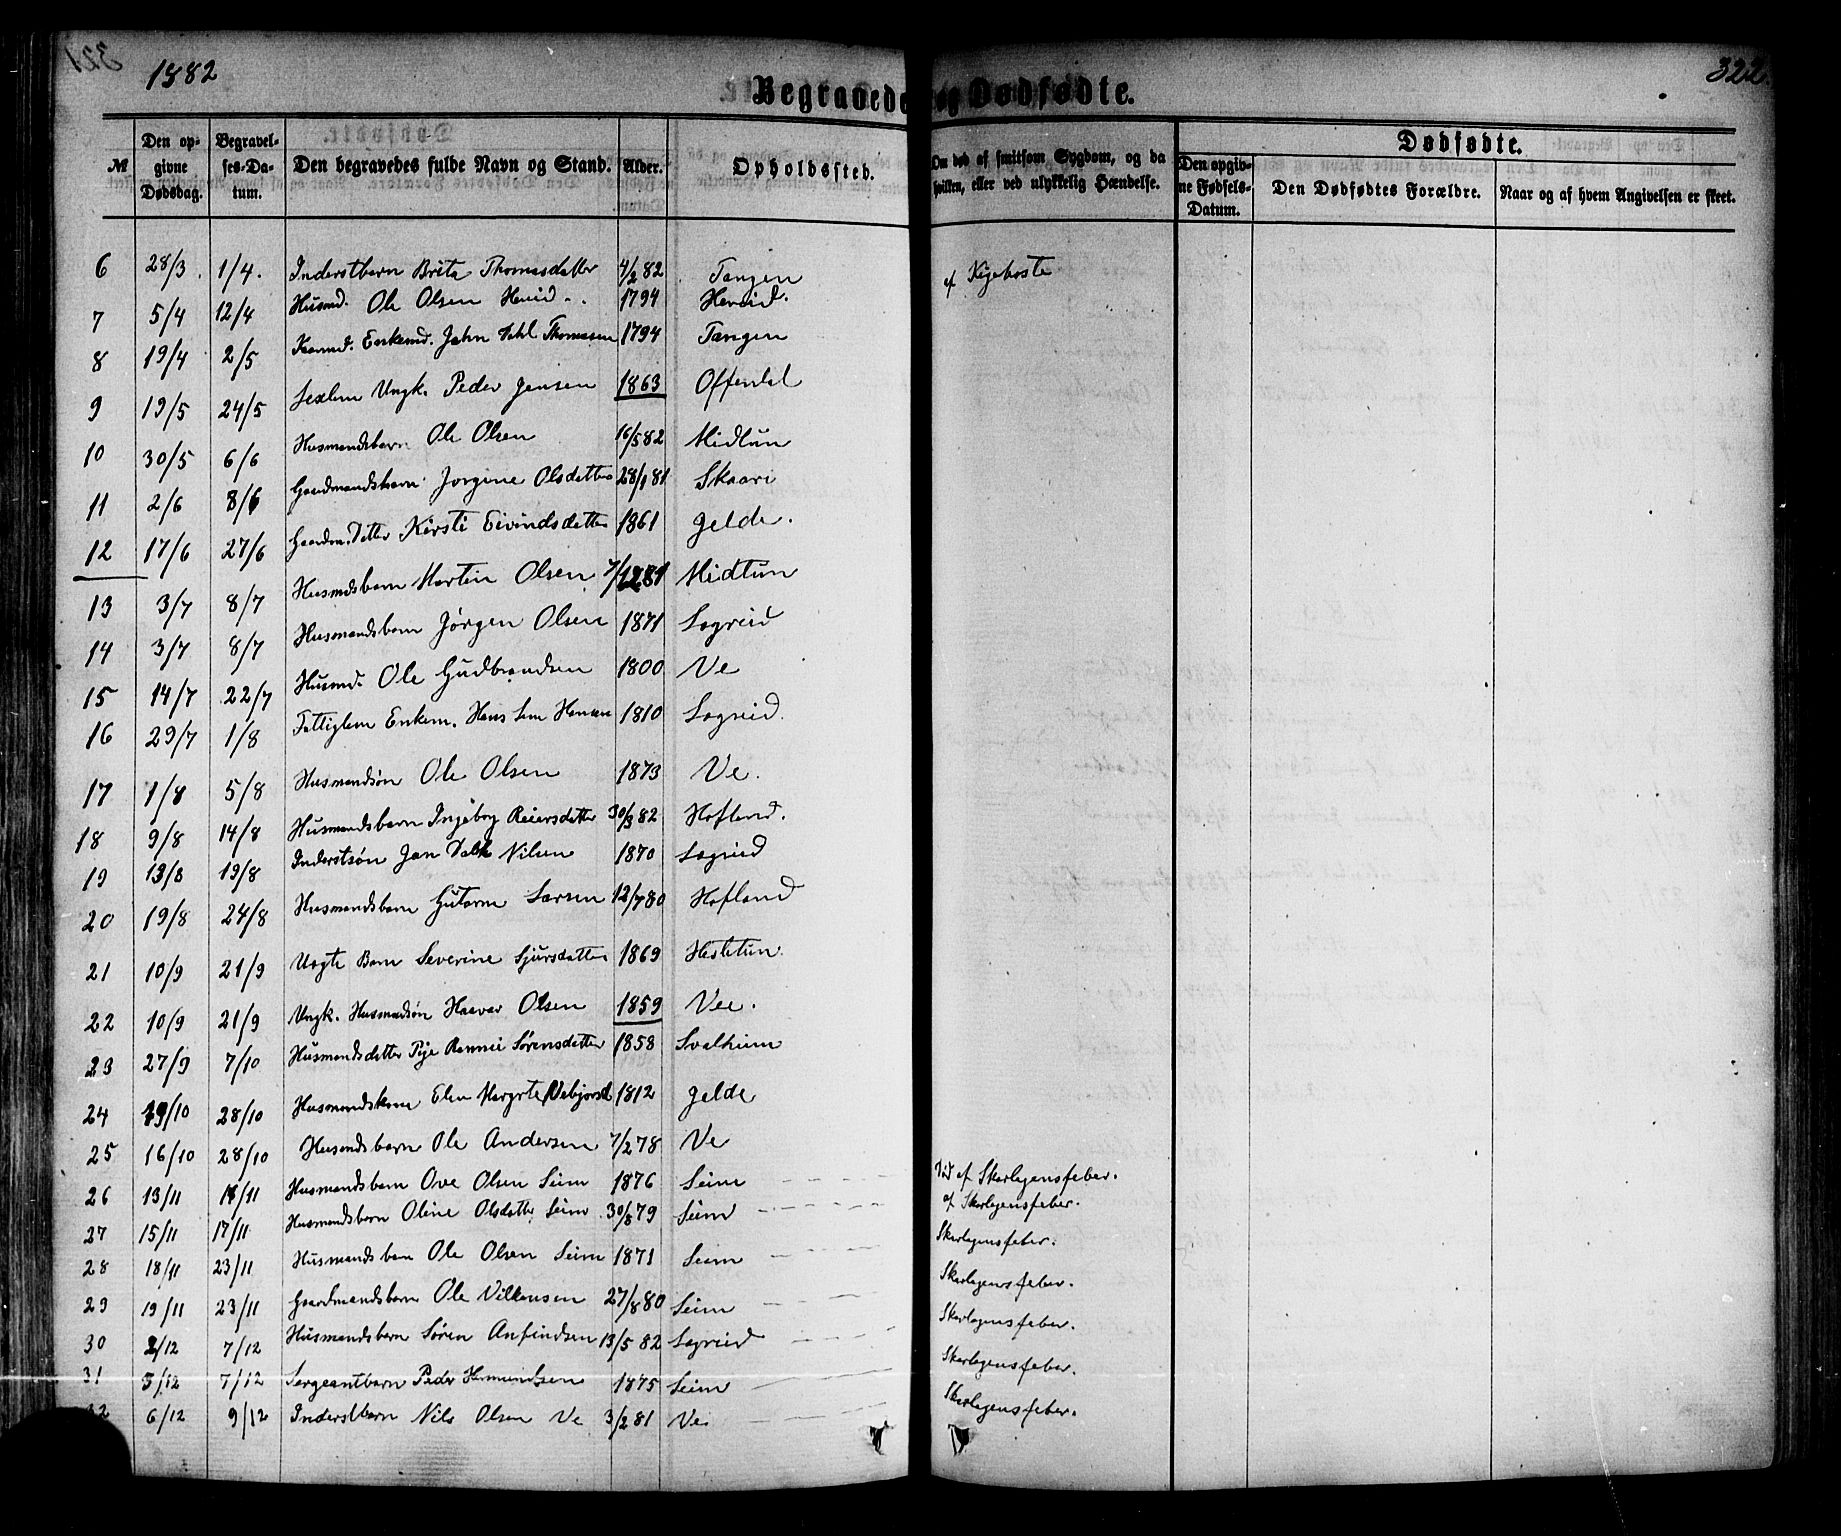 1882
322.
Begravede og Dødfødte.
№ | Den opgivne Dødsdag. | Begravelses-Datum. | Den begravedes fulde Navn og Stand. | Alder. | Opholdssted. | Om død af smitsom Sygdom, og da hvilken, eller ved ulykkelig Hændelse. | Dødfødte. | Den opgivne Fødsels-Datum. | Den Dødfødtes Forældre. | Naar og af hvem Angivelsen er skeet.
6 | 28/3. | 1/4. | Inderstbarn Brita Thomasdatter | 4/2 82 | Tangen | af Kigehoste
7 | 5/4 | 12/4 | Husmd. Ole Olsen | 1794
8 | 19/4 | 2/5 | Enkemd. John Thomasen | 1794 | Tangen
9 | 19/5 | 24/5 | Ungk. Peder Jensen | 1863 | Offerdal
10 | 30/5 | 6/6 | Husmandsbarn Ole Olsen | 16/5 82 | Midtun
11 | 2/6 | 8/6 | Gaardmandsbarn Jorgine Olsdatter | 28/1 81 | Skaari
12 | 17/6 | 27/6 | Gaardm. Datter Kirsti Eivindsdatter | 1861 | Gelde.
13 | 3/7 | 8/7 | Husmdsbarn Martin Olsen | 7/12 81 | Midtun
14 | 3/7 | 8/7 | Husmandsbarn Jørgen Olsen | 1871 | Sogreid
15 | 14/7 | 22/7 | Husmd. Ole Gudbrandsen | 1800 | Ve
16 | 29/7 | 1/8 | Fattiglem Enkem. Hans | 1810 | Sogreid.
17 | 1/8 | 5/8 | Husmandsøn Ole Olsen | 1873 | Ve.
18 | 9/8 | 14/8 | Husmandsbarn Ingeborg Reiersdatter | 30/3 82 | Hofland.
19 | 13/8 | 19/8 | Inderstsøn Jan Nilsen | 1870 | Sogreid
20 | 19/8 | 24/8 | Husmandsbarn Gutorm Larsen | 12/7 80 | Hofland
21 | 10/9 | 21/9 | Barn Severine Sjursdatter | 1869 | Hestetun.
22 | 10/9 | 21/9 | Ungk. Husmandsøn Haavar Olsen | 1859 | Vee.
23 | 27/9 | 7/10 | Husmandsdatter Pige Sørensdatter | 1858 | Svalheim
24 | 19/10 | 28/10 | Husmandskone Elen | 1812 | Gelde
25 | 16/10 | 28/10 | Husmandsbarn Ole Andersen | 7/2 78 | Ve
26 | 13/11 | 18/11 | Husmandsbarn Ove Olsen Seim | 1876 | Seim | Død af Skarlagensfeber.
27 | 15/11 | 17/11 | Husmandsbarn Oline Olsdatter Seim | 30/8 79 | Seim | af Skarlagensfeber.
28 | 18/11 | 23/11 | Husmandsbarn Ole Olsen Seim | 1871 | Seim | Skarlagensfeber.
29 | 19/11 | 23/11 | Gaardmandsbarn Ole Vilkensen | 27/8 80 | Seim | Skarlagensfeber.
30 | 2/12 | 7/12 | Husmandsbarn Søren Anfindsen | 13/5 82 | Sogreid | Skarlagensfeber.
31 | 5/12 | 7/12 | Sergeantbarn Peder Hermundsen | 1875 | Seim | Skarlagensfeber.
32 | 6/12 | 9/12 | Inderstbarn Nils Olsen Ve | 3/2 81 | Ve | Skarlagensfeber.